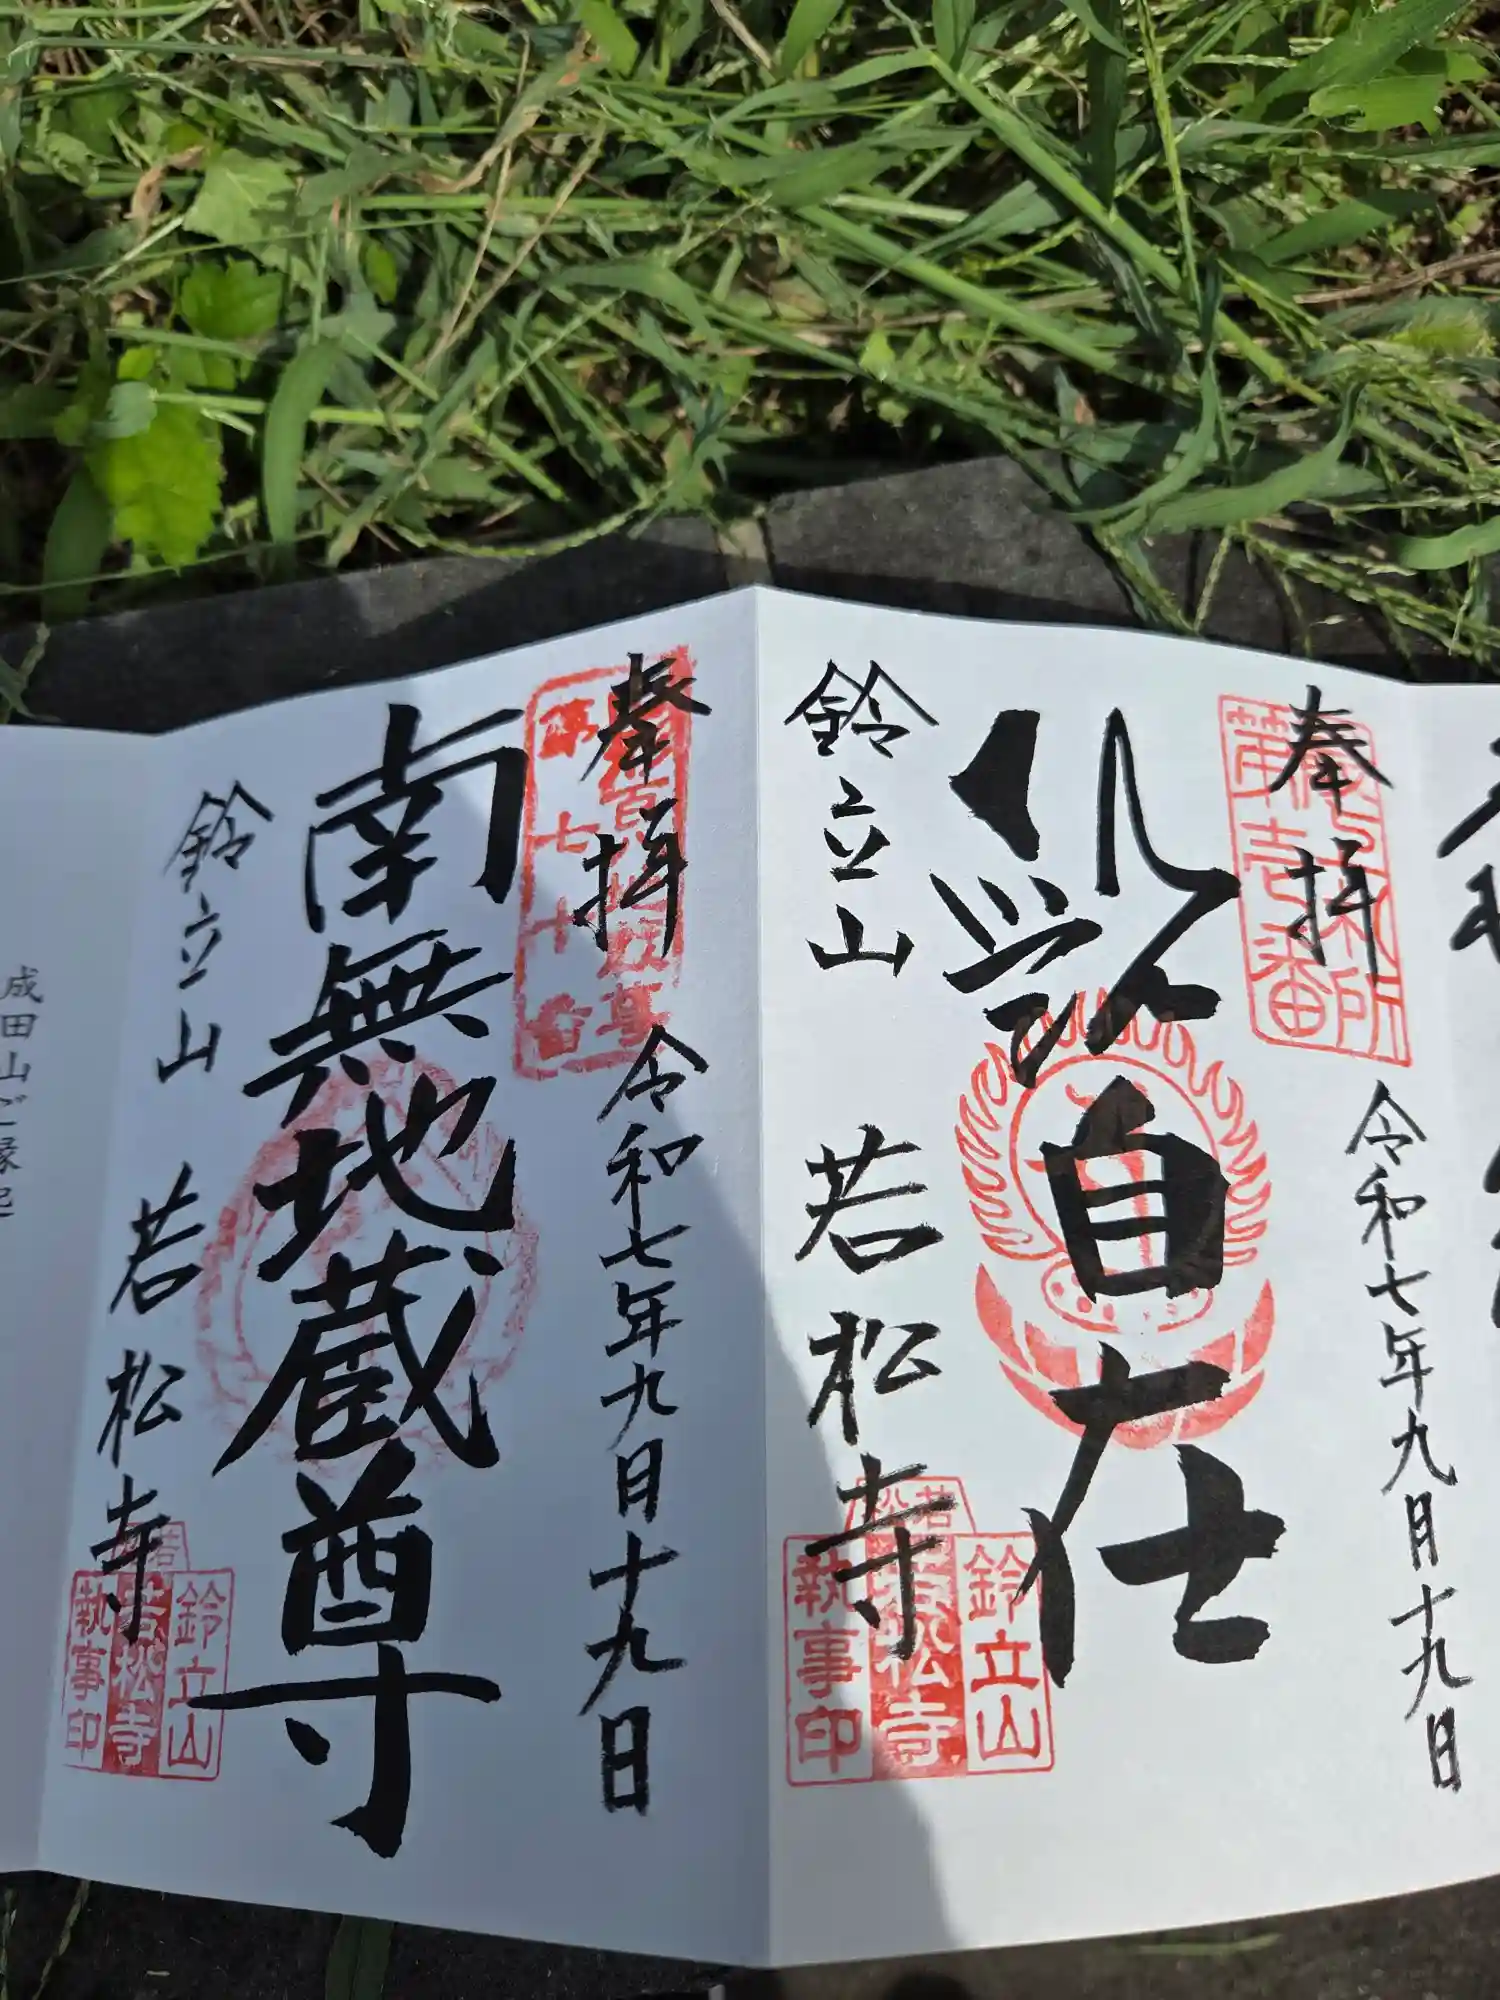 奉拝
第壱番
令和七年九月十九日
自在
鈴立山
若松寺
鈴立山
若松寺
執事印
奉拝
第七十番
令和七年九月十九日
南無地蔵尊
鈴立山
若松寺
鈴立山
若松寺
執事印
成田山ご縁起